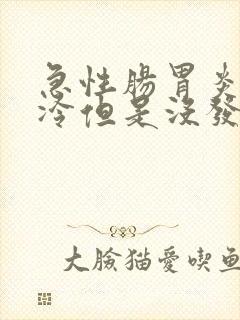 急性腸胃炎
冷但是沒發
大臉猫愛喫鱼